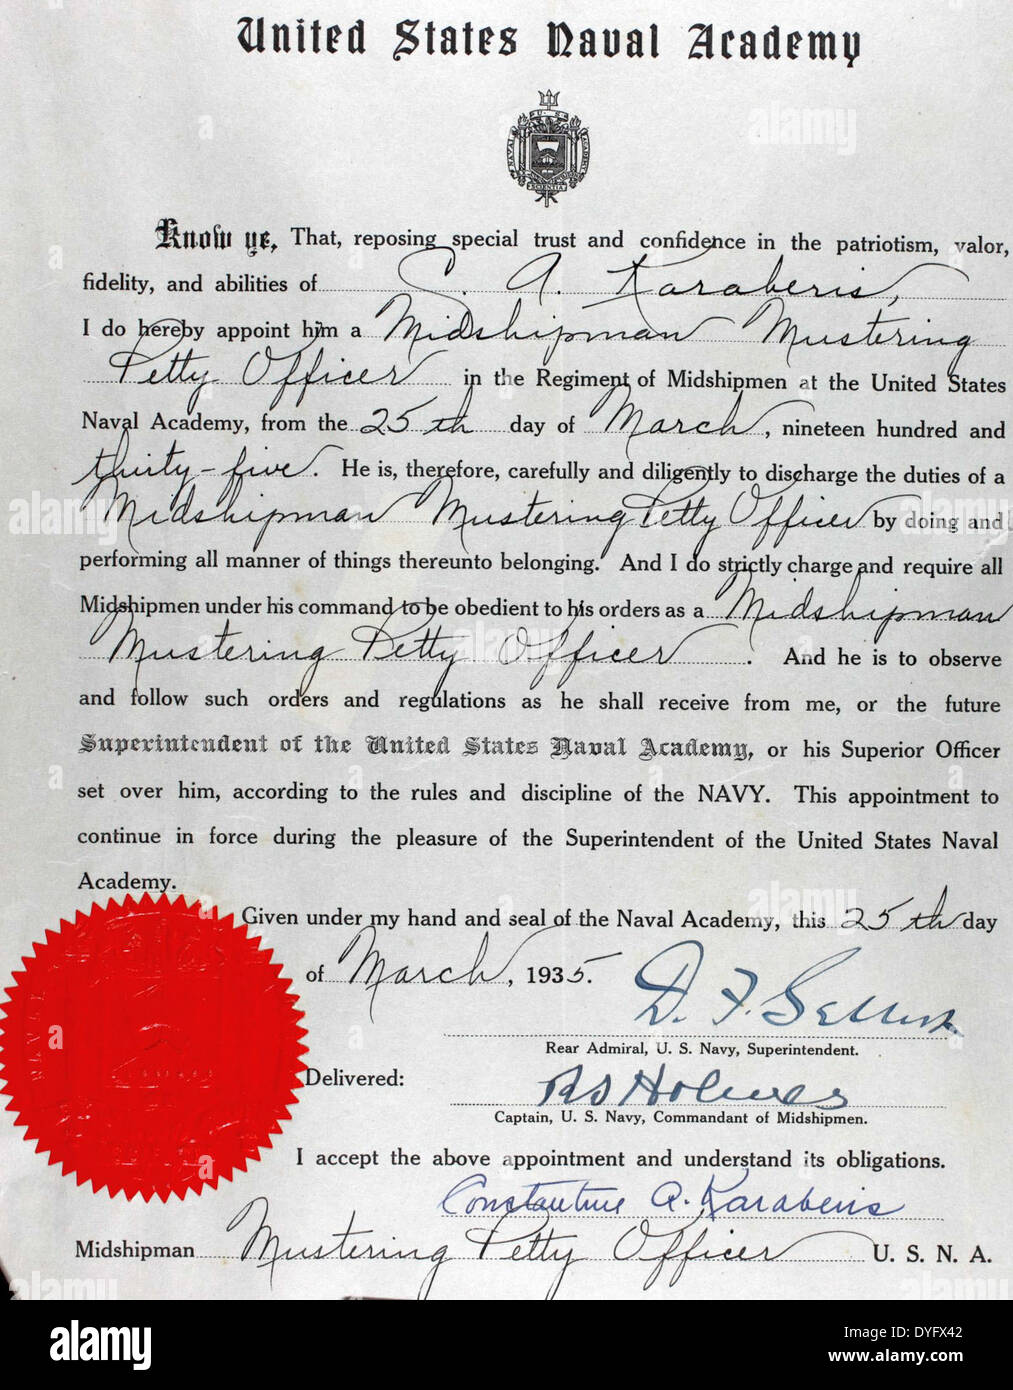 United States Naval Academy
U. S.
NAVAL ACADEMY
SCIENTIA
Know ye, That, reposing special trust and confidence in the patriotism, valor,
fidelity, and abilities of C. A. Karaberis,
I do hereby appoint him a Midshipman Mustering
Petty Officer in the Regiment of Midshipmen at the United States
Naval Academy, from the 25th day of March, nineteen hundred and
thirty-five. He is, therefore, carefully and diligently to discharge the duties of a
Midshipman Mustering Petty Officer by doing and
performing all manner of things thereunto belonging. And I do strictly charge and require all
Midshipmen under his command to be obedient to his orders as a Midshipman
Mustering Petty Officer. And he is to observe
and follow such orders and regulations as he shall receive from me, or the future
Superintendent of the United States Naval Academy, or his Superior Officer
set over him, according to the rules and discipline of the NAVY. This appointment to
continue in force during the pleasure of the Superintendent of the United States Naval
Academy.
Given under my hand and seal of the Naval Academy, this 25th day
of March, 1935.
D. F. Sellers
Rear Admiral, U. S. Navy, Superintendent.
Delivered:
RS Holmes
Captain, U. S. Navy, Commandant of Midshipmen.
I accept the above appointment and understand its obligations.
Constantine A. Karaberis
Midshipman Mustering Petty Officer U. S. N. A.
alamy
Image ID: DYFX42
www.alamy.com